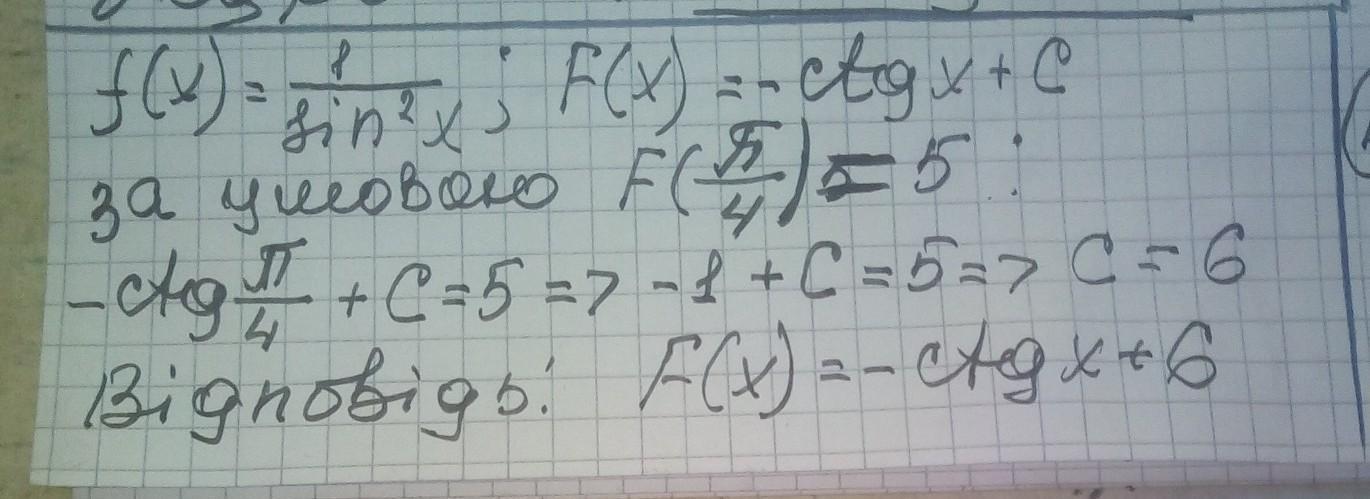 f(x) = 1/sin²x ; F(x) = - ctg x + C
за умовою F(π/4) = 5 :
- ctg π/4 + C = 5 => -1 + C = 5 => C = 6
Відповідь: F(x) = - ctg x + 6